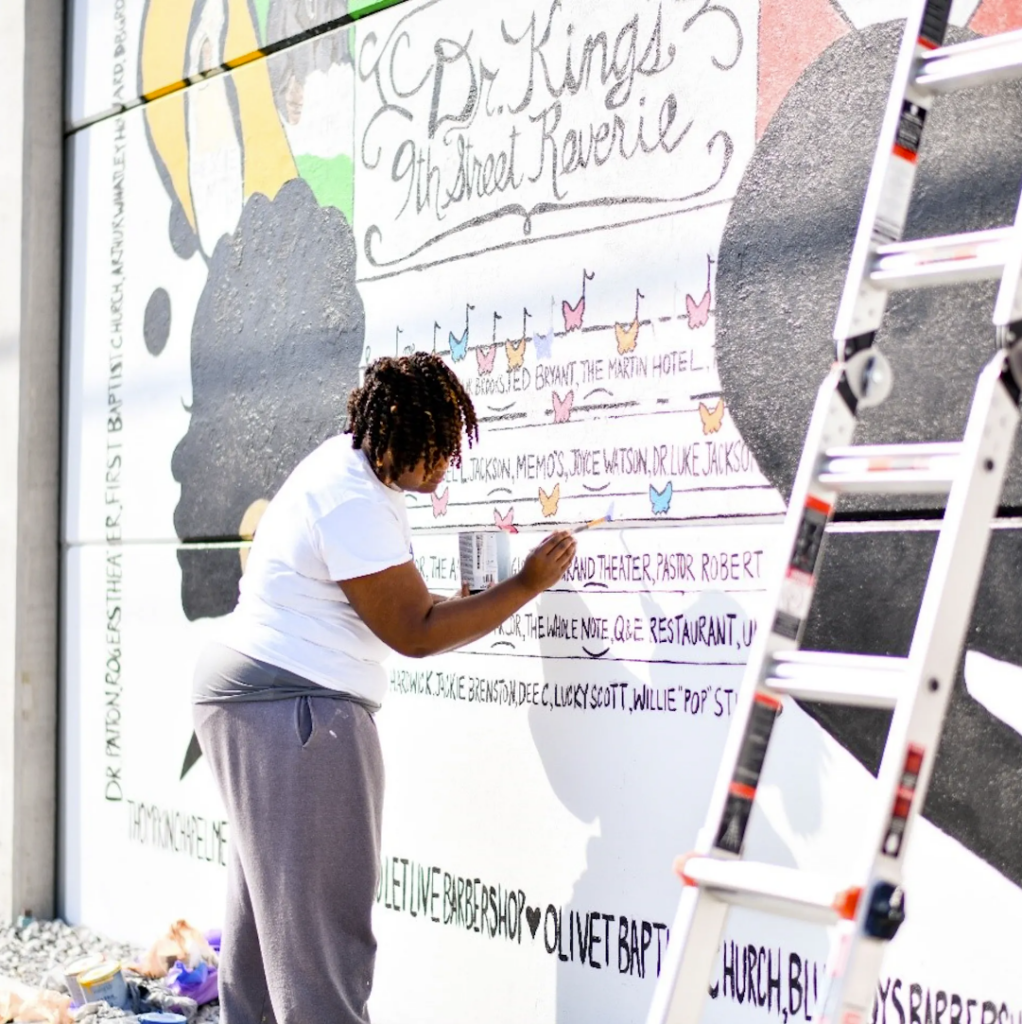 Dr. King's
9th Street Reverie
BROOKS, TED BRYANT, THE MARTIN HOTEL.
L. JACKSON, MEMO'S, JOYCE WATSON, DR. LUKE JACKSON
OR, THE A
AND THEATER, PASTOR ROBERT
THE WHOLE NOTE, Q&E RESTAURANT, U
HARDWICK, JACKIE BRENSTON, DEE C, LUCKY SCOTT, WILLIE "POP" ST
DR PATTON, ROGERS THEATER, FIRST BAPTIST CHURCH, ARTHUR WHATLEY HOWARD,
THOMPKIN CHAPEL ME
LET LIVE BARBERSHOP ♥ OLIVET BAPTI CHURCH, BLU YS BARBERSH